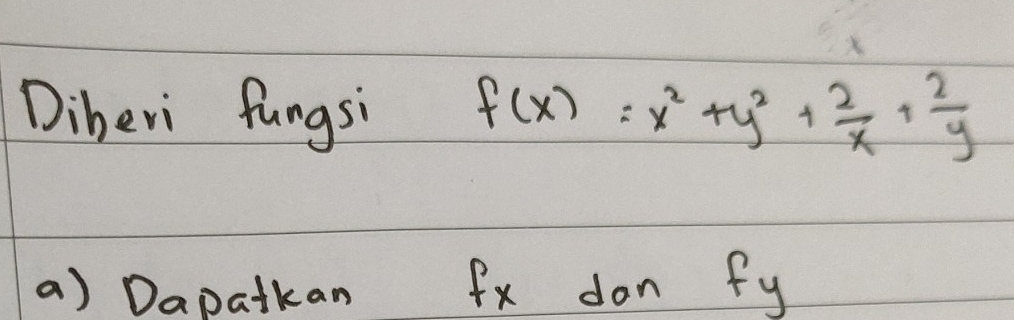 Diberi fungsi f(x) = x² + y² + 2/x + 2/y
a) Dapatkan fx dan fy